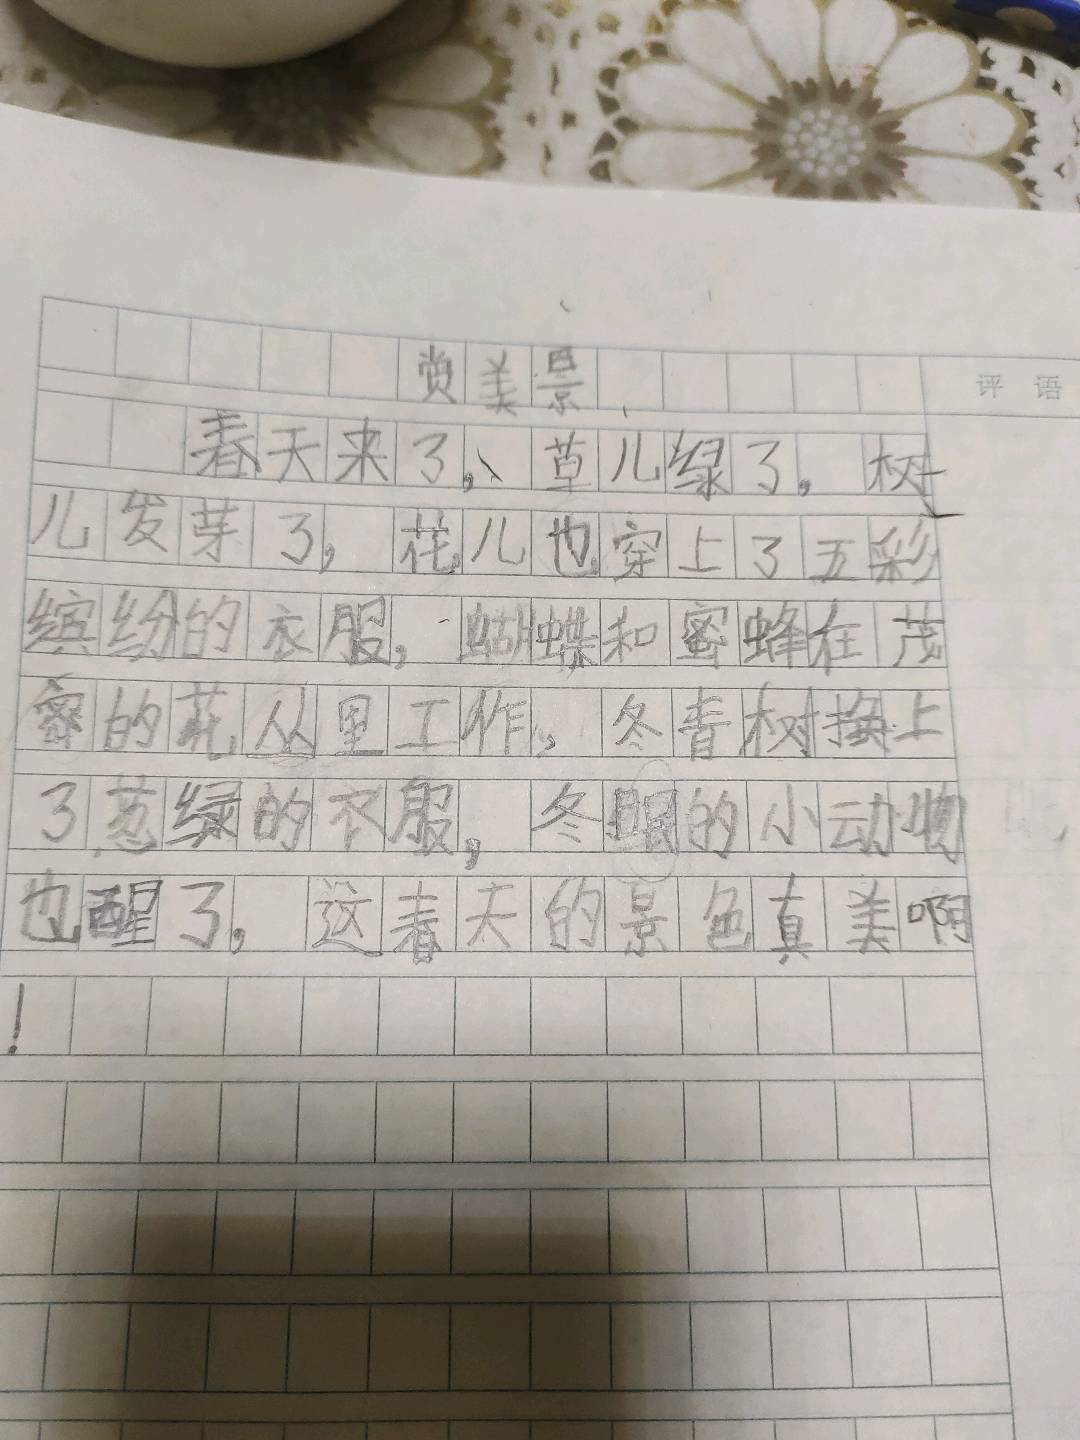 赏美景
评语
春天来了、草儿绿了，树
儿发芽了，花儿也穿上了五彩
缤纷的衣服，蝴蝶和蜜蜂在茂
密的花丛里工作，冬青树换上
了葱绿的衣服，冬眠的小动物
也醒了，这春天的景色真美啊
！